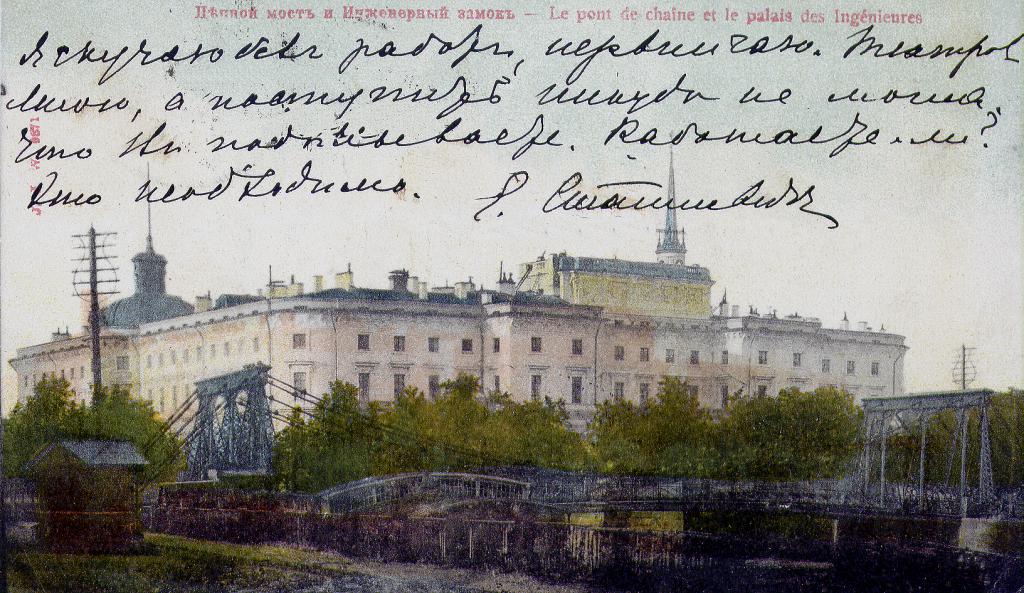 Цѣпной мостъ и Инженерный замокъ — Le pont de chaîne et le palais des Ingénieures
Я скучаю безъ работы, нервничаю. Театровъ
много, а поступить никуда не могла.
Что Вы подѣлываете. Работаете-ли?
Это необходимо.